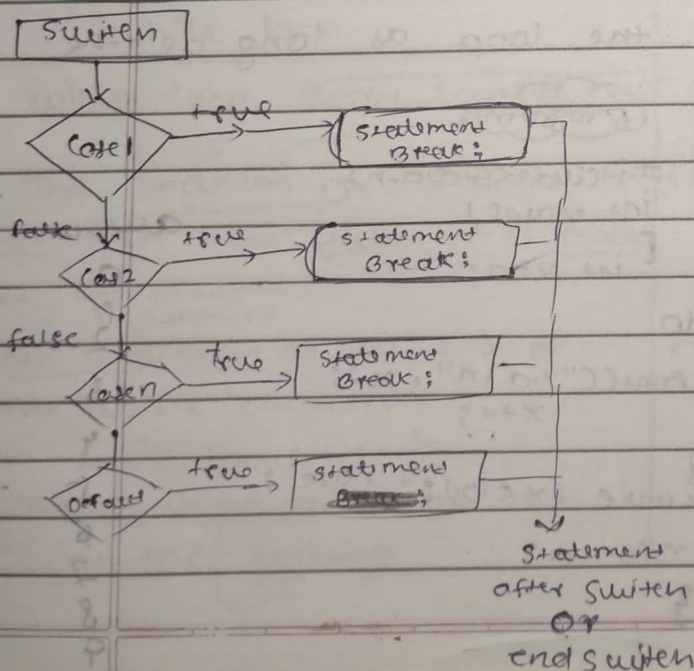 Switch
Case1
true
Statement
Break;
false
Case2
true
Statement
Break;
false
Casen
true
Statement
Break;
Default
true
Statement
Statement
after switch
Or
end switch